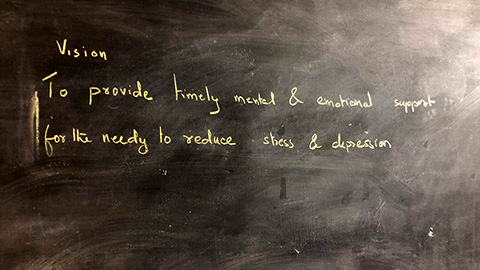 Vision
To provide timely mental & emotional support
for the needy to reduce stress & depression